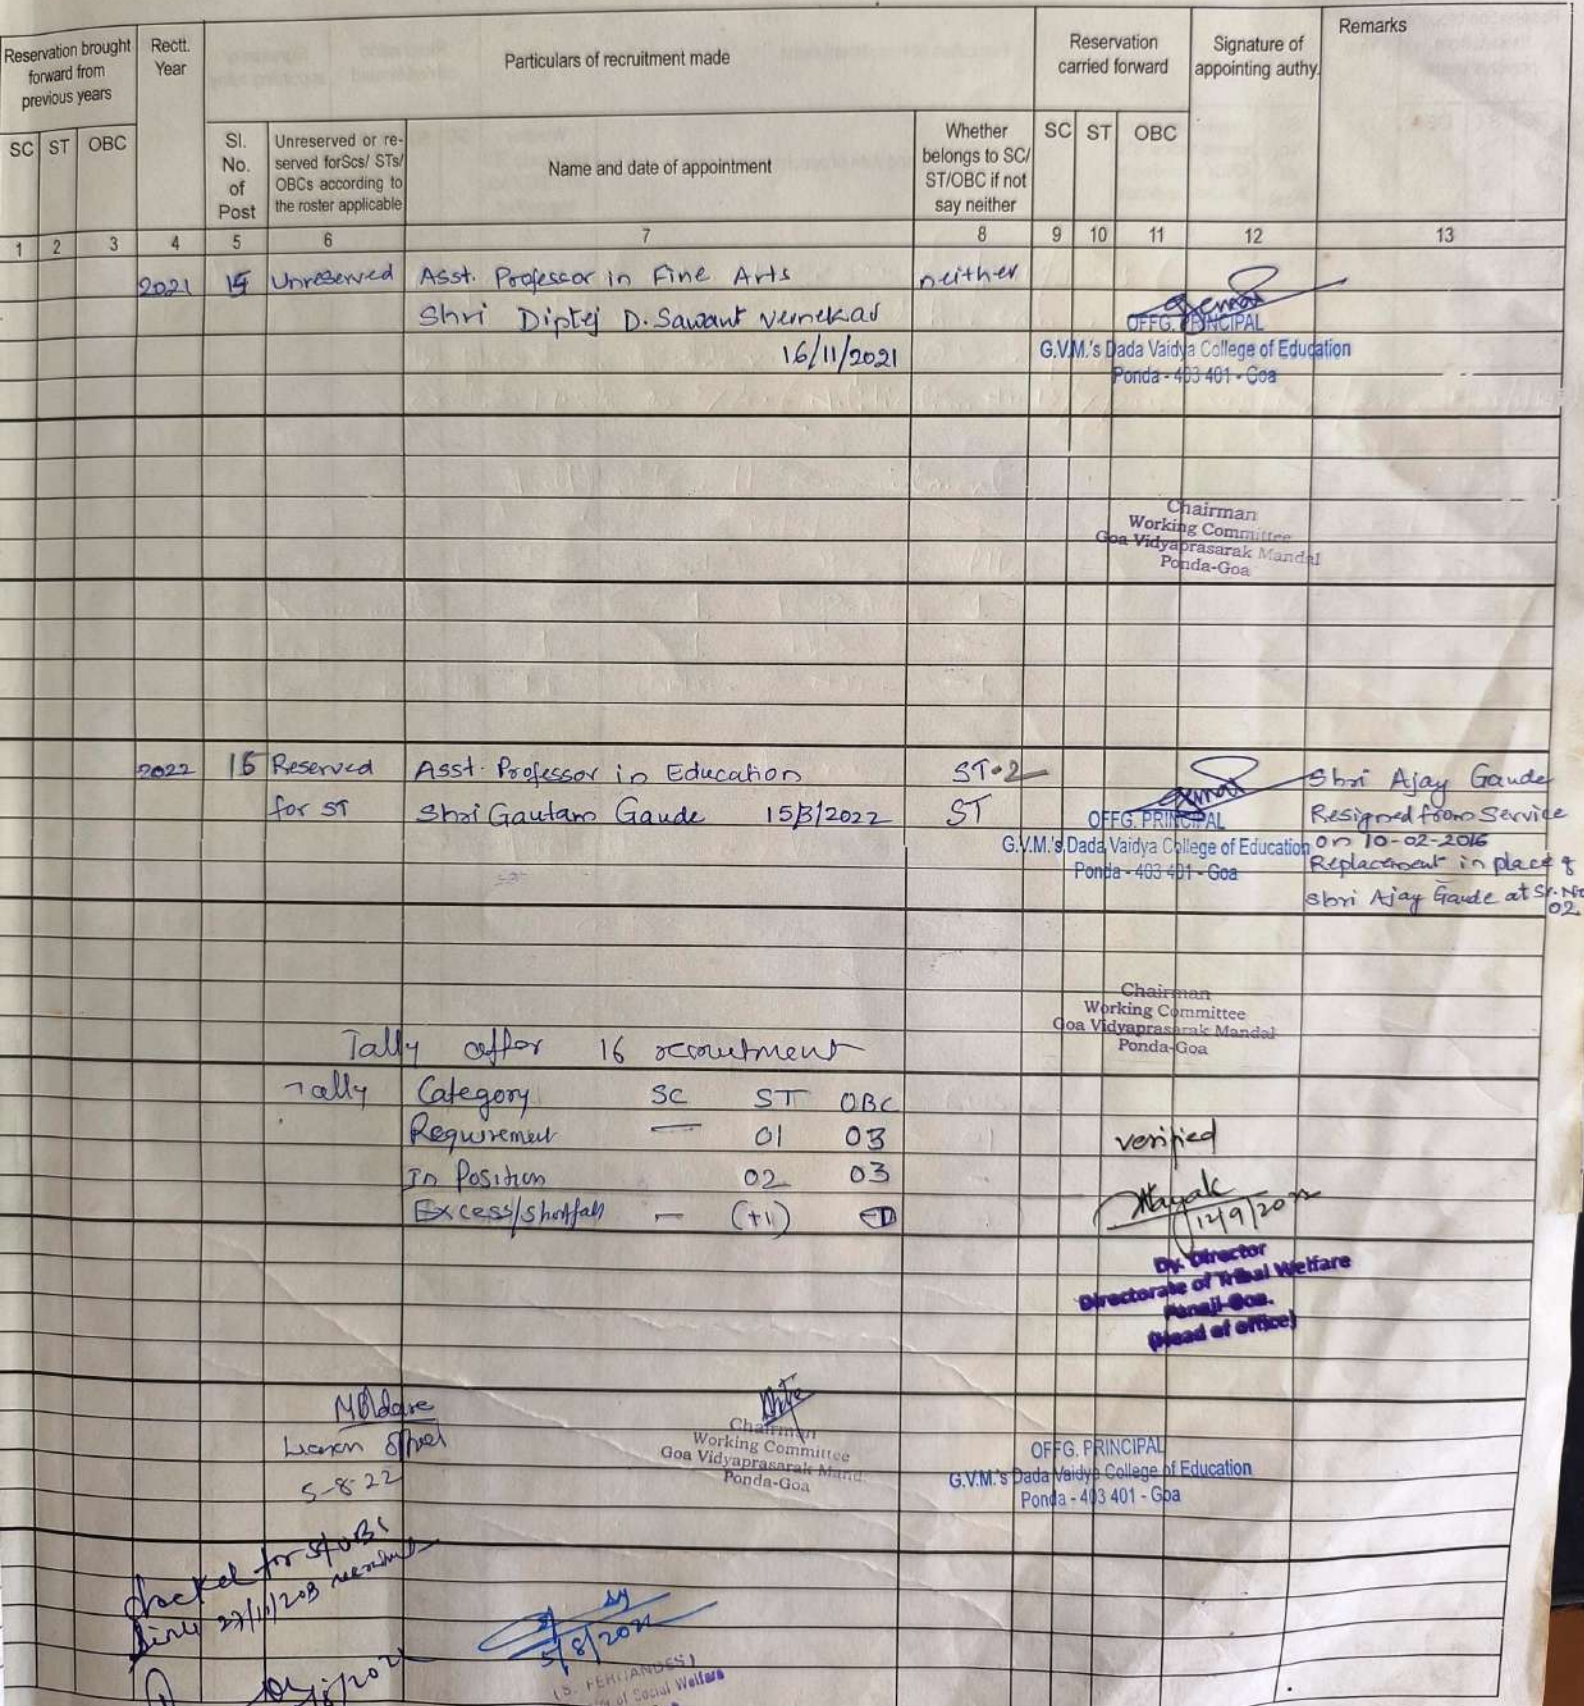 Reservation brought forward from previous years
Rectt. Year
Particulars of recruitment made
Reservation carried forward
Signature of appointing authy.
Remarks
SC ST OBC
Sl. No. of Post
Unreserved or re-served forScs/ STs/ OBCs according to the roster applicable
Name and date of appointment
Whether belongs to SC/ ST/OBC if not say neither
SC ST OBC
1 2 3 4 5 6 7 8 9 10 11 12 13
2021 15 Unreserved Asst. Professor in Fine Arts neither
Shri Diptej D. Sawant Vernekar
16/11/2021
OFFG. PRINCIPAL
G.V.M.'s Dada Vaidya College of Education
Ponda - 403 401 - Goa
Chairman
Working Committee
Goa Vidyaprasarak Mandal
Ponda-Goa
2022 16 Reserved Asst. Professor in Education ST-2
for ST Shri Gautam Gaude 15/3/2022 ST
OFFG. PRINCIPAL
G.V.M.'s Dada Vaidya College of Education
Ponda - 403 401 - Goa
Shri Ajay Gaude
Resigned from Service
on 10-02-2016
Replacement in place of
Shri Ajay Gaude at Sr. No
02.
Chairman
Working Committee
Goa Vidyaprasarak Mandal
Ponda-Goa
Tally after 16 recruitment
Tally Category SC ST OBC
Requirement — 01 03
In Position 02 03
Excess/Shortfall — (+1)
verified
Nayak
12/9/20
Dy. Director
Directorate of Tribal Welfare
Panaji-Goa.
(Head of office)
Liaison
5-8-22
Chairman
Working Committee
Goa Vidyaprasarak Mand.
Ponda-Goa
OFFG. PRINCIPAL
G.V.M.'s Dada Vaidya College of Education
Ponda - 403 401 - Goa
for
5/8/2022
(S. FERNANDES)
of Social Welfare